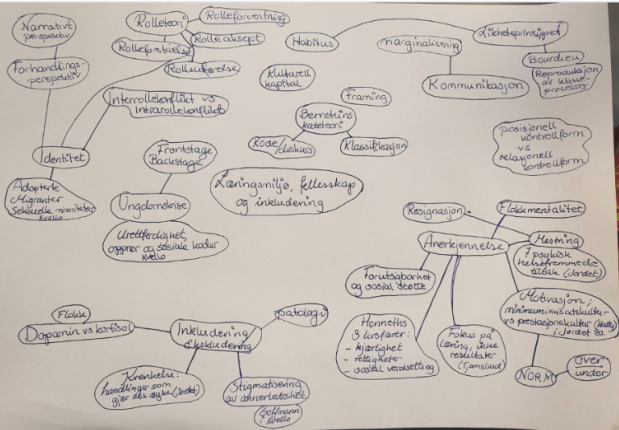 Narrativt
perspektiv
Forhandlings-
perspektiv
Rolleteori
Rolleforventning
Rolleaksept
Rolleforståelse
Rolleutførelse
Interrollekonflikt vs
intrarollekonflikt
Identitet
Adopterte
Migranter
Seksuelle minoriteter
Frontstage
Backstage
Ungdomskrise
Urettferdighet,
oppner og sosiale koder
Habitus
Kulturell
kapital
marginalisering
Likhetsprinsippet
Kommunikasjon
Bourdieu
Reproduksjon
av klasse-
prosesser
Framing
Bernsteins
kodeteori
Kode/diskurs
Klassifikasjon
posisjonell
kontrollform
vs
relasjonell
kontrollform
Læringsmiljø, fellesskap
og inkludering
Resignasjon
Flokkmentalitet
Anerkjennelse
Mestring
7 psykisk
helsefremmende
tiltak (Jordet)
Forutsigbarhet
og sosial støtte
Honneths
3 livsfærer:
- kjærlighet
- rettigheter
- sosial verdsetting
Fokus på
læring, ikke
resultater
(Tjomsland)
Motivasjon;
minimumsinnsatskultur
vs prestasjonskultur
i Jordet
NORM
over
under
Flokk
Dopamin vs kortisol
Inkludering
Ekskludering
patologi
Krenkelse:
handlinger som
gjør oss syke (Jordet)
Stigmatisering
av annerledeshet
Goffmann
i Kvello